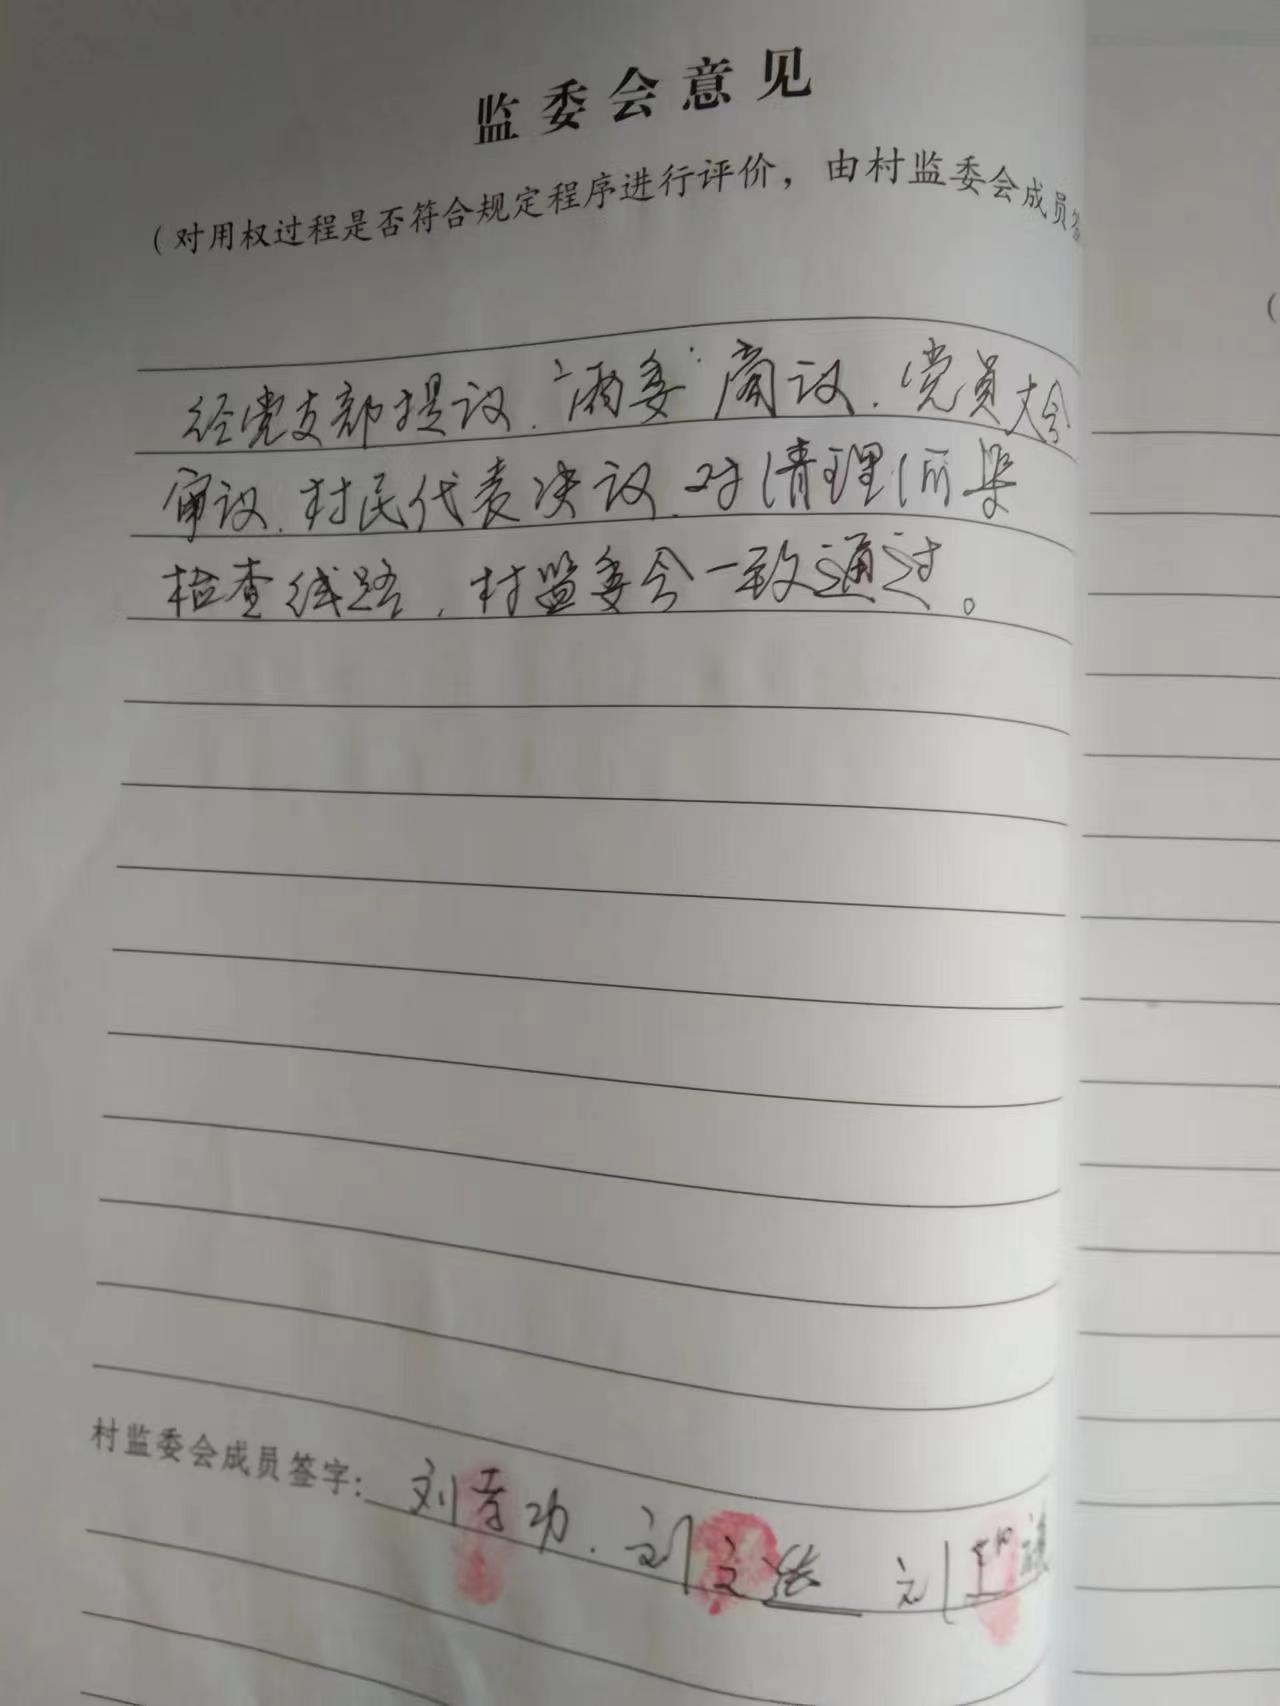 监委会意见
（对用权过程是否符合规定程序进行评价，由村监委会成员签
经党支部提议、“两委”商议、党员大会
审议、村民代表决议、对清理河渠
检查线路，村监委会一致通过。
村监委会成员签字：刘孝功、刘文 刘
（